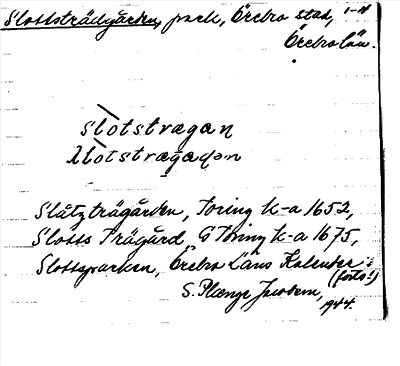 Slottsträdgården, park, Örebro stad, 1-4
Örebro län.
slotstrægan
slotstrægadən
Slåtzträgården, Toring K-a 1652,
Slotts Trägård, G Töring K-a 1675,
Slottsparken, Örebro Läns Kalender
(forts!)
S. Plænge Jacobson,
1944.